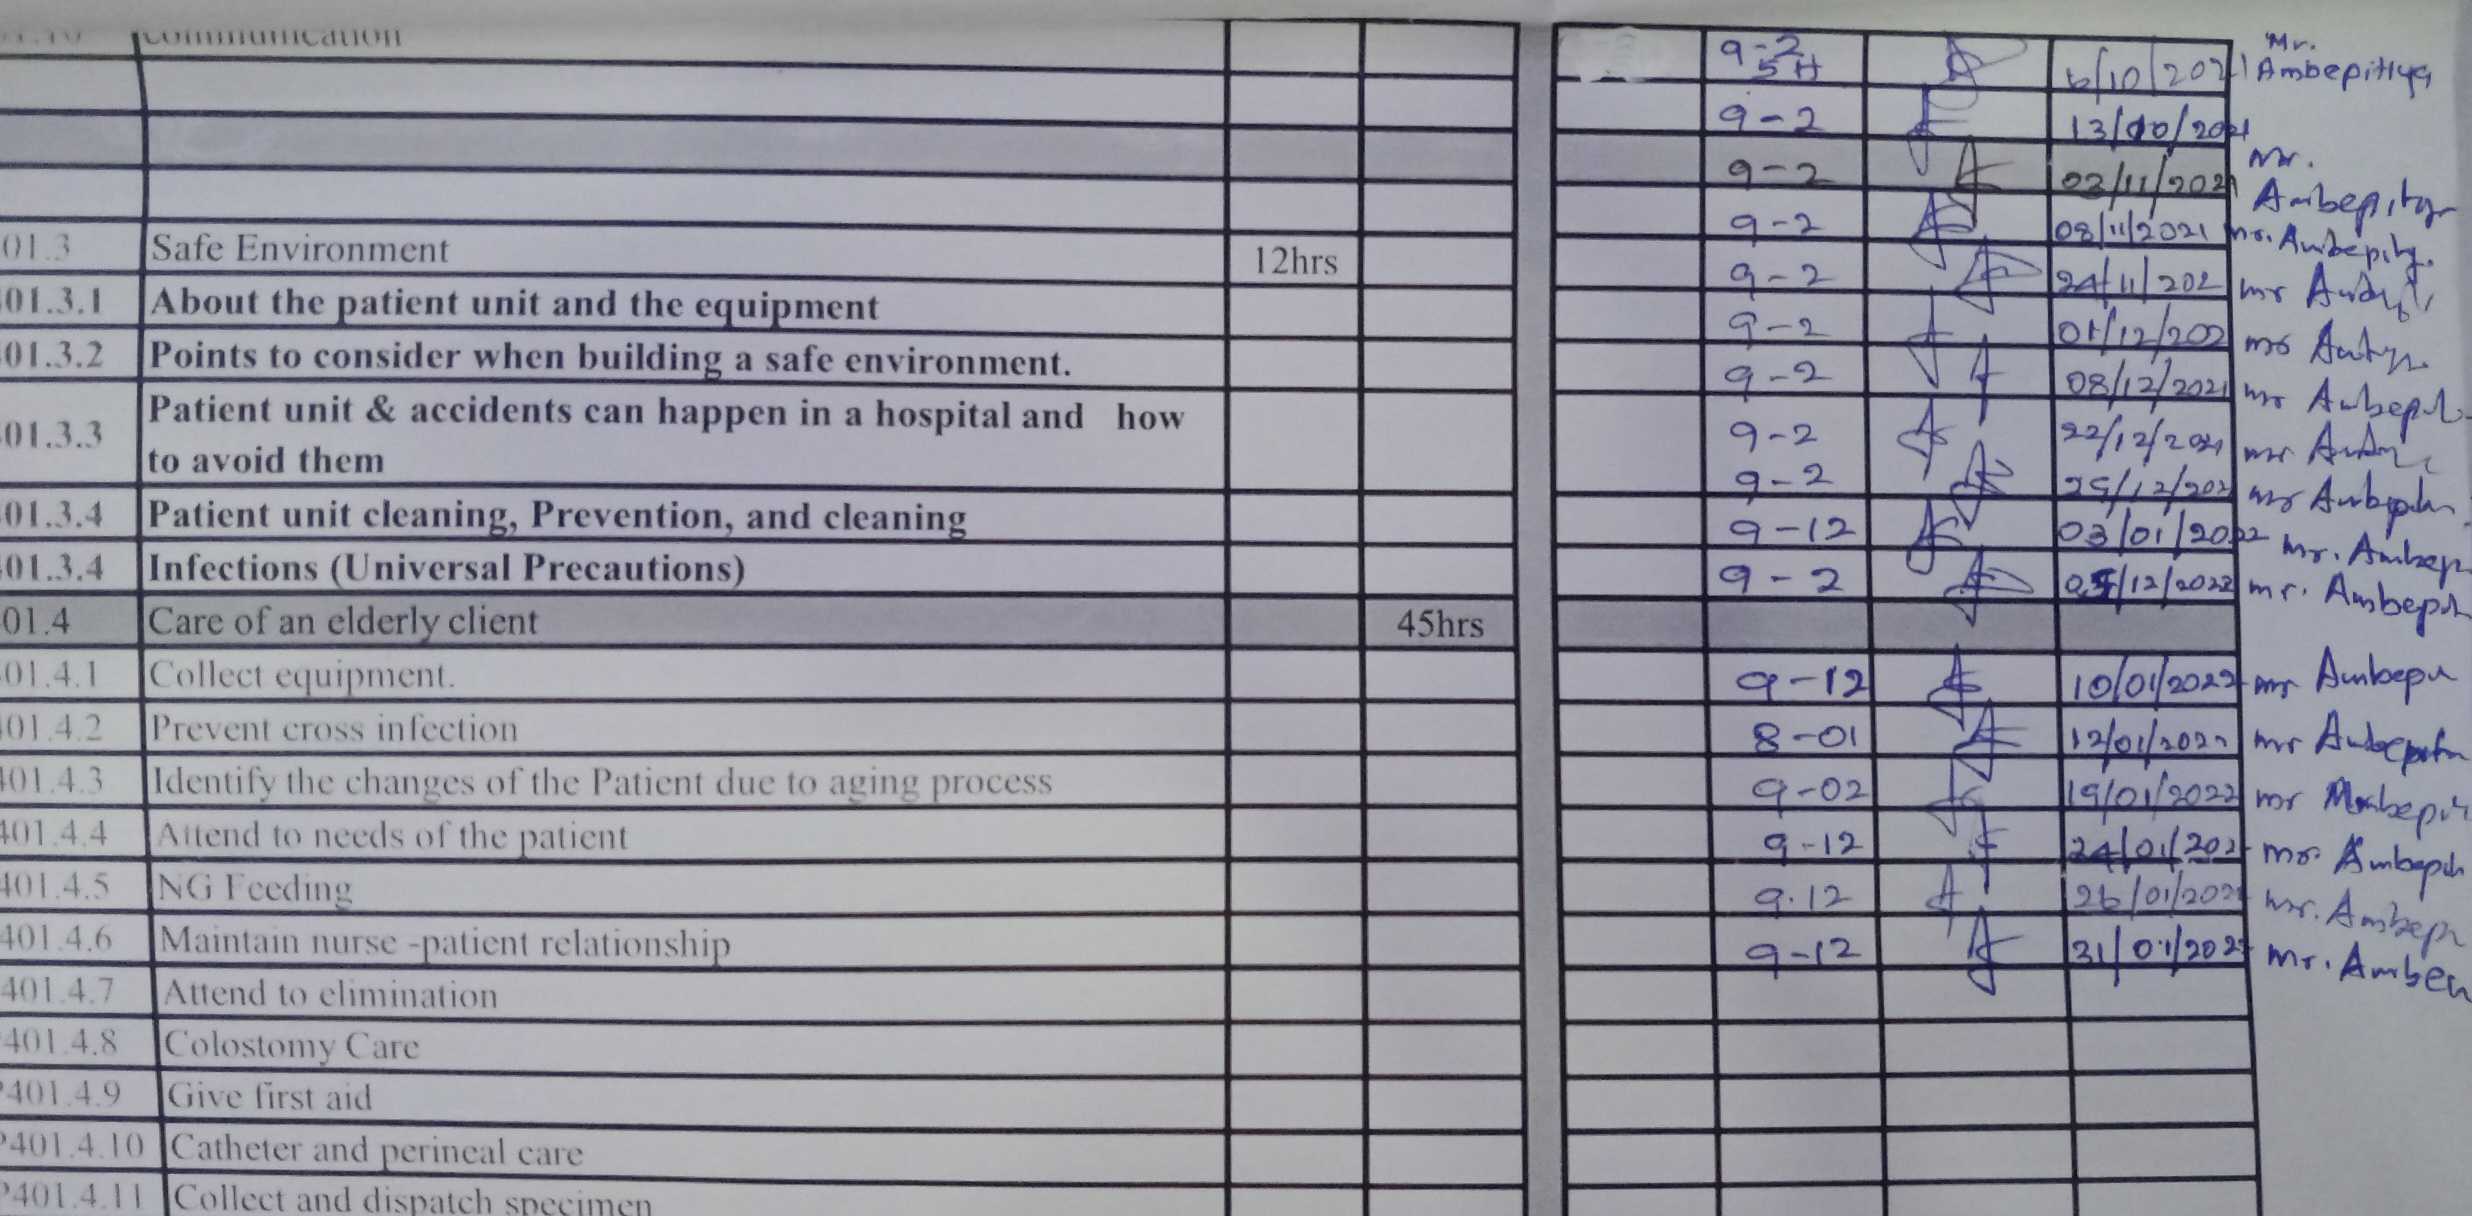 communication
9-2
5H
6/10/2021
Mr.
Ambepitiya
9-2
13/10/2021
9-2
02/11/2021
Mr.
Ambepitiya
9-2
08/11/2021
Mr. Ambepity.
01.3 Safe Environment 12hrs
9-2
24/11/202
mr
01.3.1 About the patient unit and the equipment
9-2
01/12/202
mr
01.3.2 Points to consider when building a safe environment.
9-2
08/12/2021
mr
01.3.3 Patient unit & accidents can happen in a hospital and how
to avoid them
9-2
22/12/2021
mr
9-2
29/12/202
mr
01.3.4 Patient unit cleaning, Prevention, and cleaning
9-12
03/01/2022
mr. Ambep
01.3.4 Infections (Universal Precautions)
9-2
mr. Ambepit
01.4 Care of an elderly client 45hrs
01.4.1 Collect equipment.
9-12
10/01/2022
mr Ambepi
01.4.2 Prevent cross infection
8-01
12/01/2022
mr
401.4.3 Identify the changes of the Patient due to aging process
9-02
19/01/2022
mr
401.4.4 Attend to needs of the patient
9-12
24/01/202
mr Ambepit
401.4.5 NG Feeding
9.12
26/01/202
mr. Ambepi
401.4.6 Maintain nurse -patient relationship
9-12
31/01/202
mr. Ambe
401.4.7 Attend to elimination
401.4.8 Colostomy Care
401.4.9 Give first aid
401.4.10 Catheter and perineal care
401.4.11 Collect and dispatch specimen